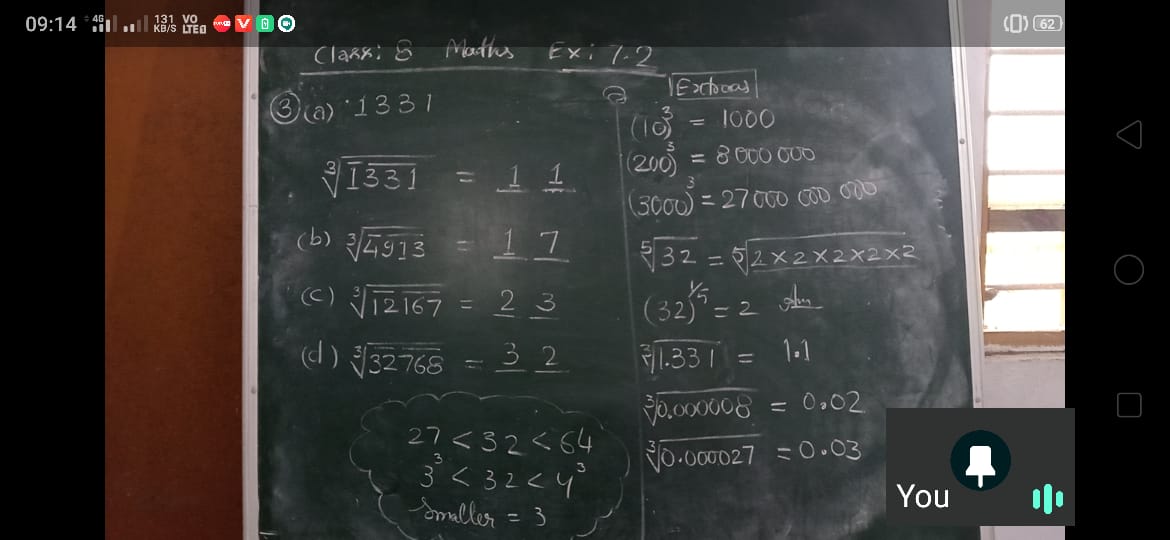 09:14 4G 131 KB/S VO LTE 62
Class: 8 Maths Ex: 7.2
③(a) 1331
∛1331 = 1 1
(b) ∛4913 = 1 7
(c) ∛12167 = 2 3
(d) ∛32768 = 3 2
27 < 32 < 64
3³ < 32 < 4³
Smaller = 3
Extras
(10)³ = 1000
(200)³ = 8000000
(3000)³ = 27000 000 000
⁵√32 = ⁵√2×2×2×2×2
(32)^1/5 = 2 Ans
∛1.331 = 1.1
∛0.000008 = 0.02
∛0.000027 = 0.03
You